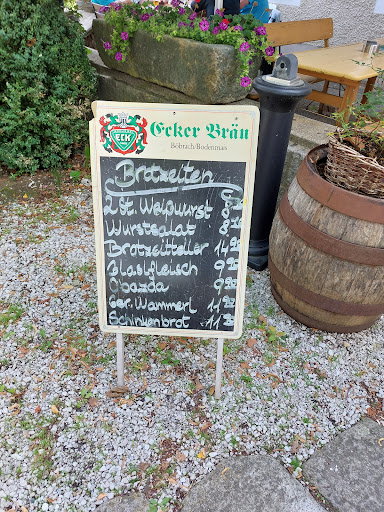 ECK
Ecker Bräu
Böbrach/Bodenmais
Brotzeiten
2 St. Weißwurst
Wurstsalat
Brotzeitteller 14
Glasfleisch 9
Obazda 9
Ger. Wammerl 11
Schinkenbrot 11